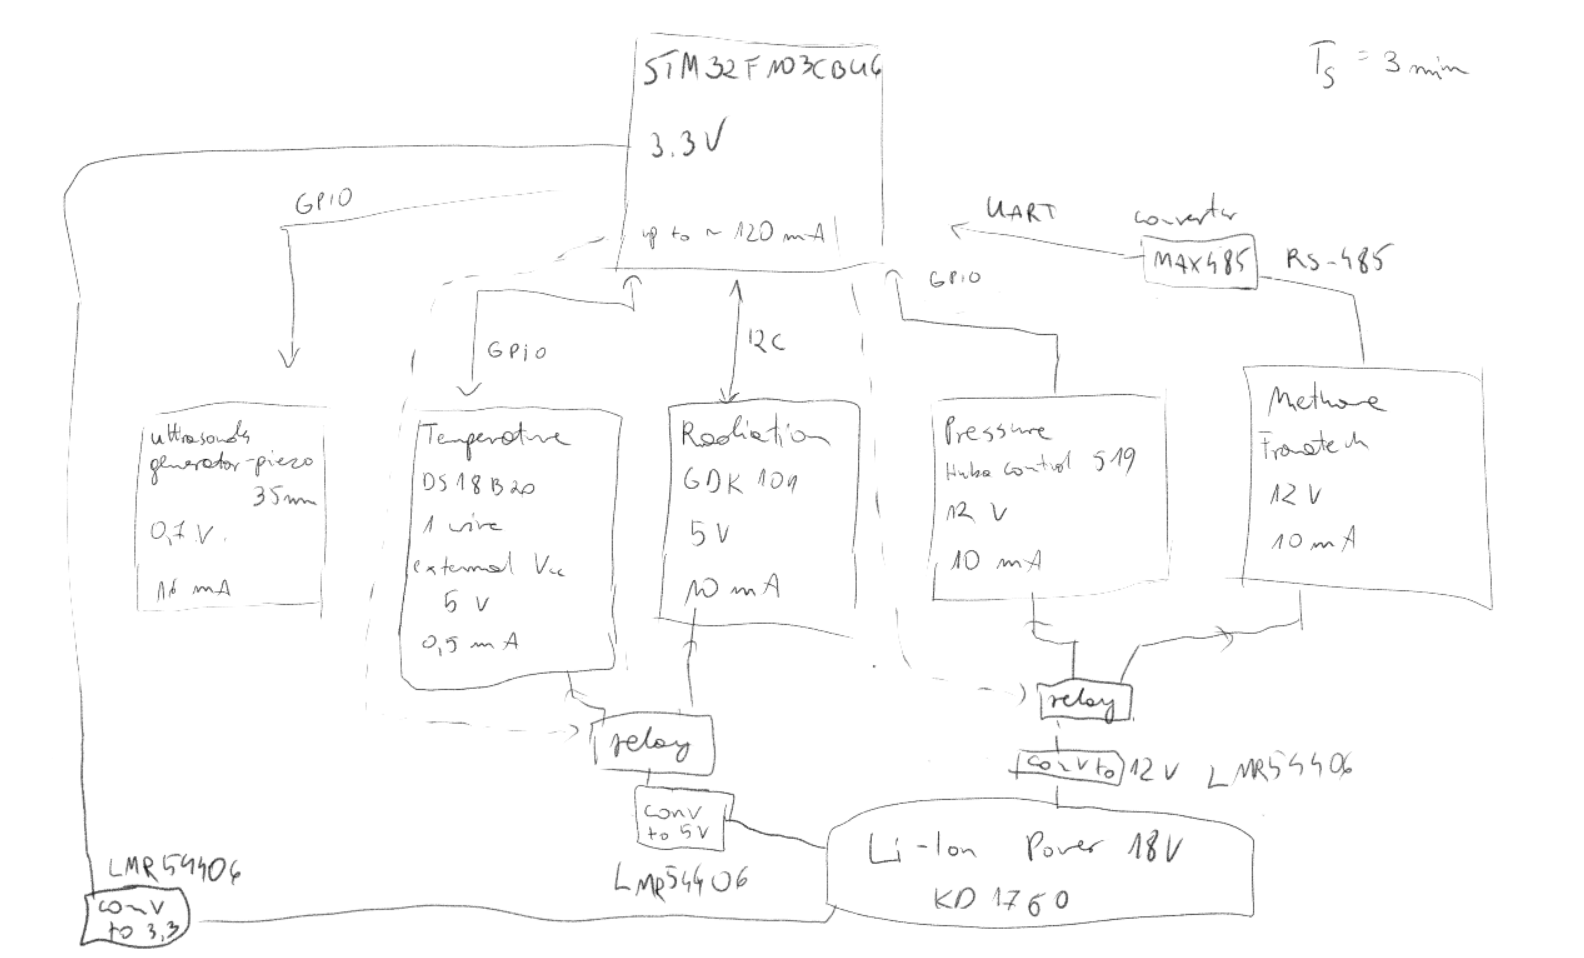 STM32F103CBU6
3.3V
up to ~ 120 mA
Ts = 3 min
GPIO
GPiO
I2C
GPiO
UART
converter
MAX485
RS-485
ultrasounds
generator-piezo
35mm
0,7 V.
16 mA
Temperature
DS18B20
1 wire
external Vcc
5 V
0,5 mA
Radiation
GDK 101
5 V
10 mA
Pressure
Huba Control 519
12 V
10 mA
Methane
Franatech
12 V
10 mA
relay
relay
conv to 12V LMR54406
conv
to 5V
LMR54406
Li-Ion Power 18V
KD 1760
LMR54406
conv
to 3,3